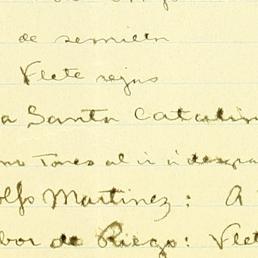 de semilla
Flete rejas
a Santa Catalin
no Tores al ir a despa
olfo Martinez: A
bor de Riego: Flet